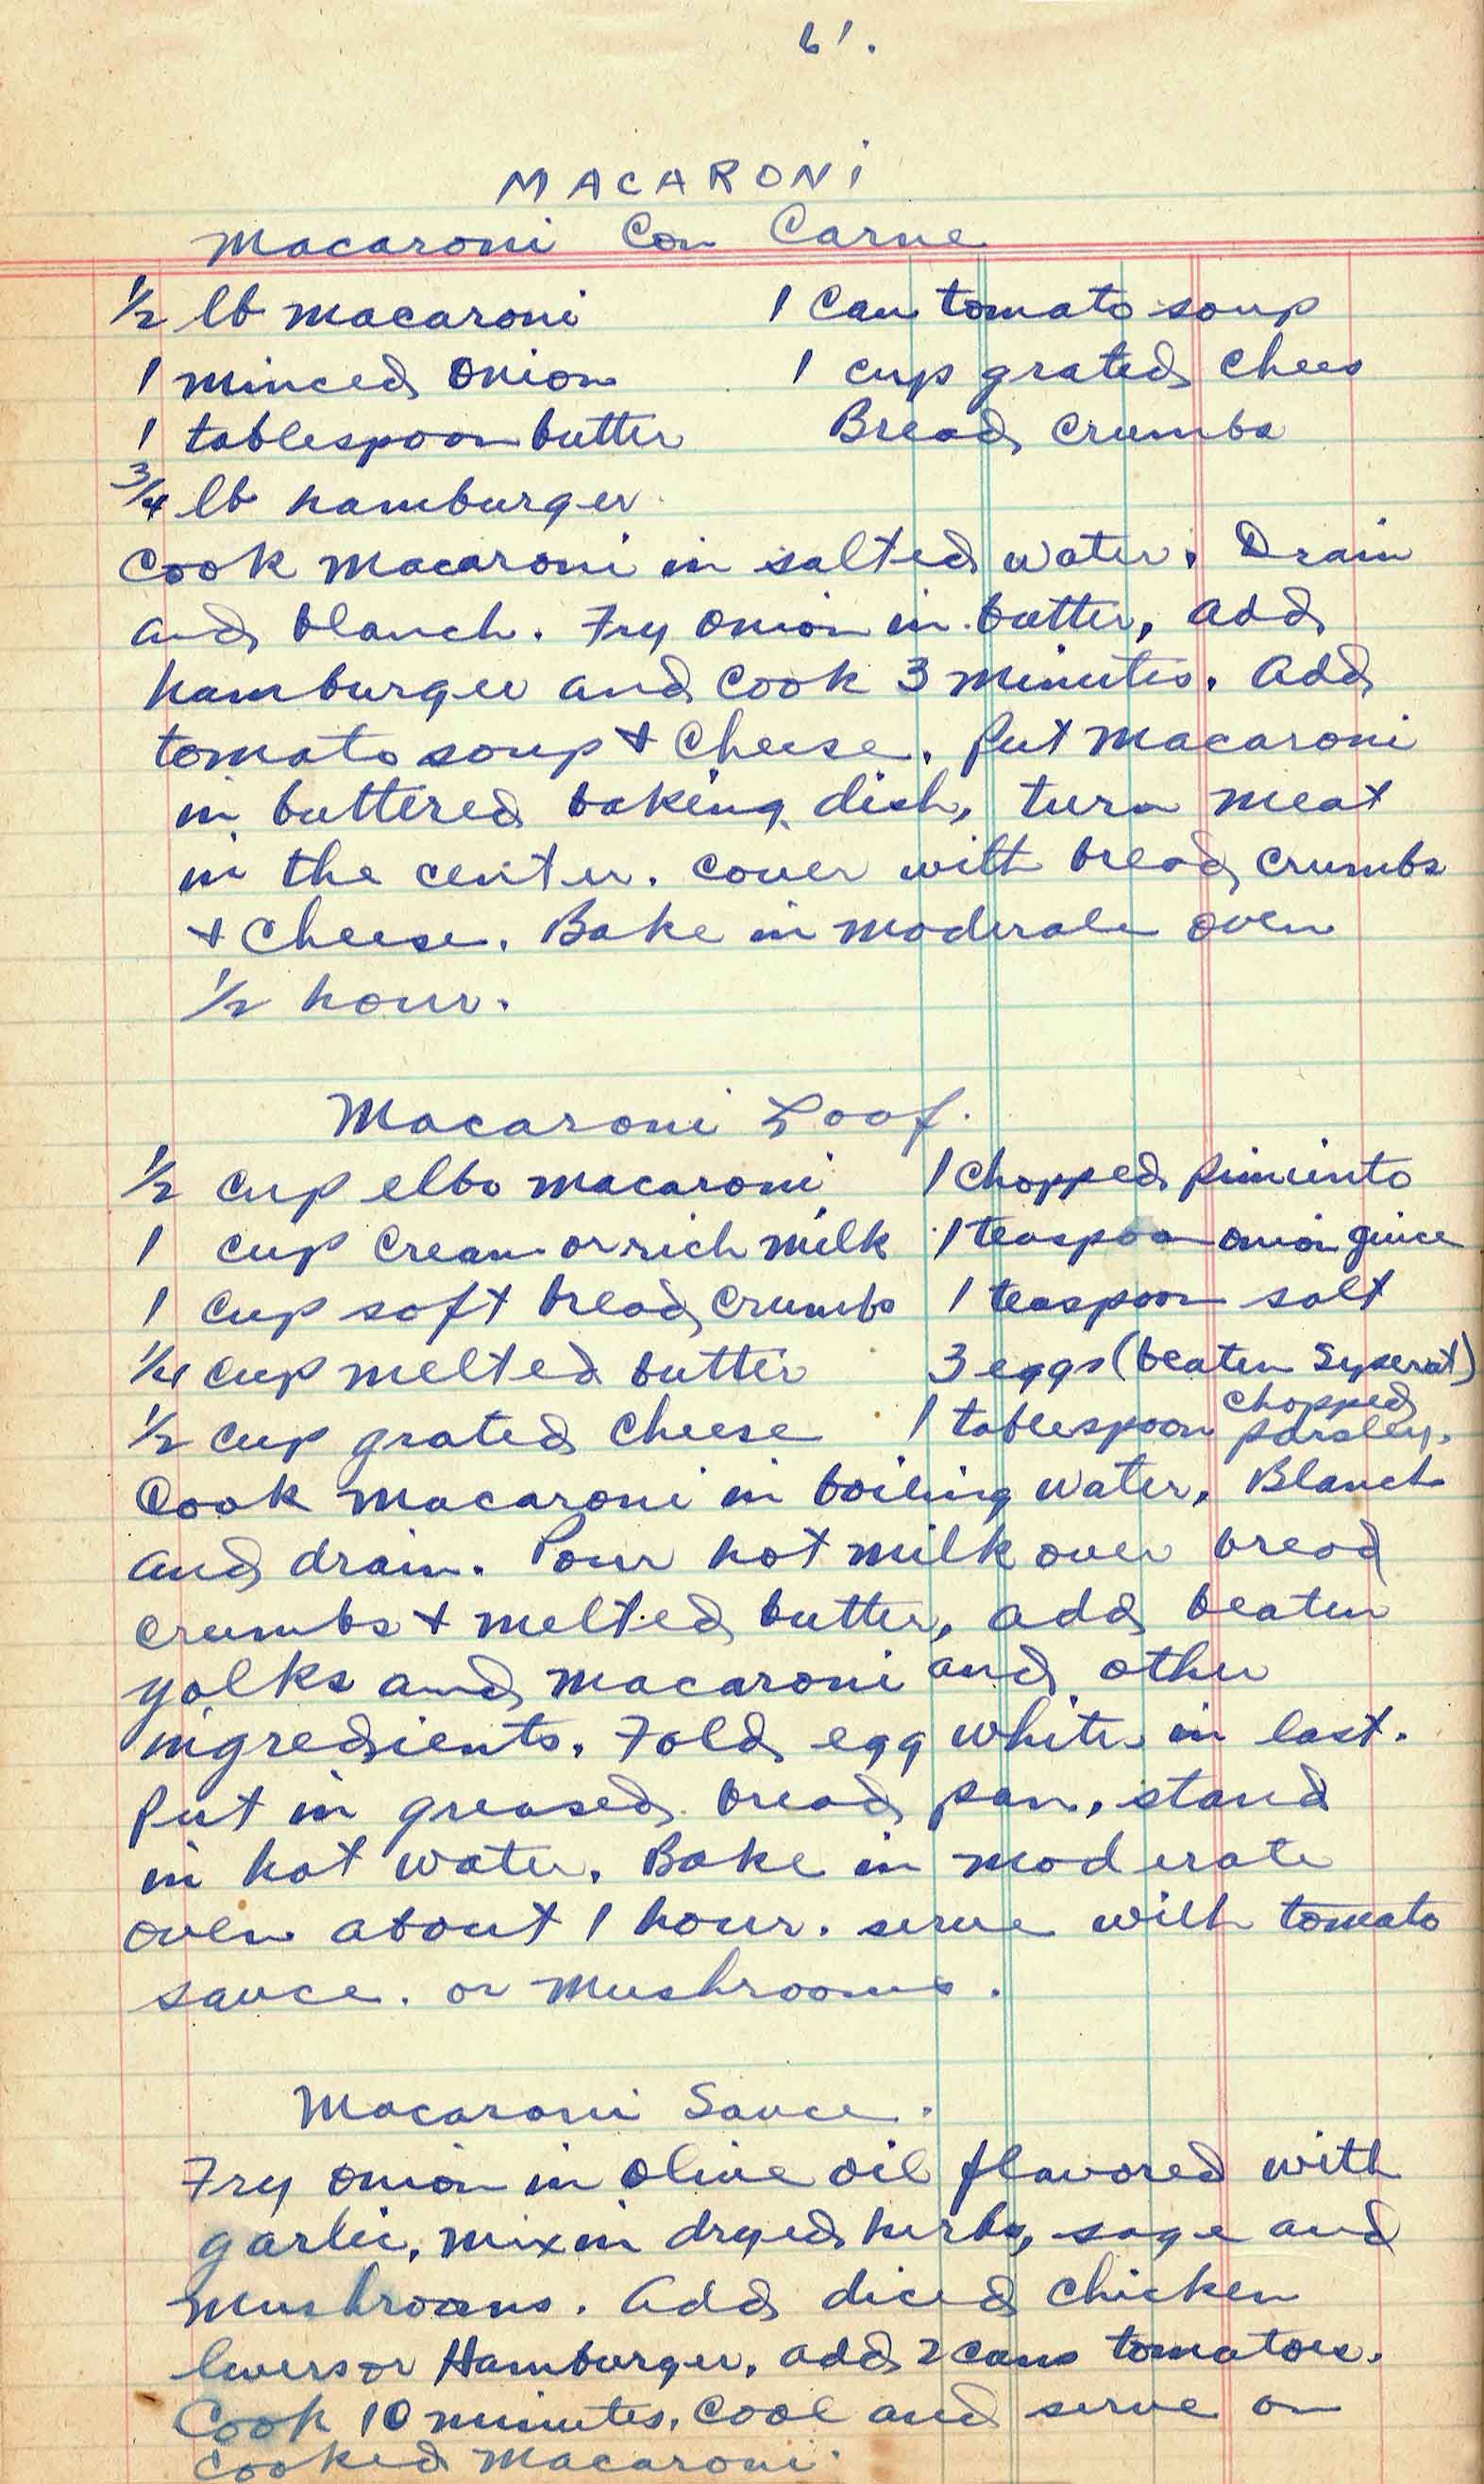 61.
MACARONi
Macaroni Con Carne
1/2 lb macaroni 1 Can tomato soup
1 minced onion 1 cup grated chees
1 tablespoon butter Bread crumbs
3/4 lb hamburger
Cook macaroni in salted water. Drain
and blanch. Fry onion in butter, add
hamburger and cook 3 minutes. Add
tomato soup + cheese. Put macaroni
in buttered baking dish, turn meat
in the center. Cover with bread crumbs
+ cheese. Bake in moderate oven
1/2 hour.
Macaroni Loaf.
1/2 cup elbo macaroni 1 chopped pimiento
1 cup cream or rich milk 1 teaspoon onion guice
1 cup soft bread crumbs 1 teaspoon salt
1/4 cup melted butter 3 eggs (beaten Syperat)
1/2 cup grated cheese 1 tablespoon chopped parsley.
Cook macaroni in boiling water. Blanch
and drain. Pour hot milk over bread
crumbs + melted butter, add beaten
yolks and macaroni and other
ingredients. Fold egg whites in last.
Put in greased bread pan, stand
in hot water. Bake in moderate
oven about 1 hour. serve with tomato
sauce. or mushrooms.
Macaroni Sauce.
Fry onion in olive oil flavored with
garlic, mix in dryed herbs, sage and
mushrooms. Add diced chicken
livers or Hamburger. add 2 cans tomatoes.
Cook 10 minutes. Cool and serve on
cooked macaroni.